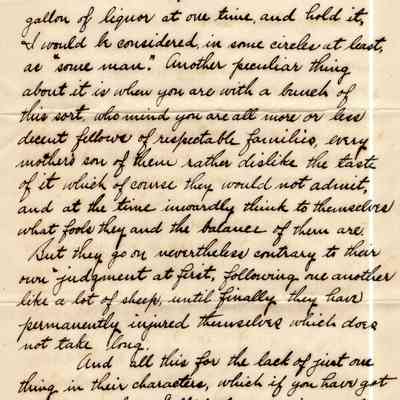 gallon of liquor at one time, and hold it,
& I would be considered, in some circles at least,
as "some man". Another peculiar thing
about it is when you are with a bunch of
this sort, who mind you are all more or less
decent fellows of respectable families, every
mother's son of them rather dislike the taste
of it which of course they would not admit,
and at the time inwardly think to themselves
what fools they and the balance of them are.
But they go on nevertheless contrary to their
own "judgment at first, following one another
like a lot of sheep, until finally they have
permanently injured themselves which does
not take long.
And all this for the lack of just one
thing in their characters, which if you have got